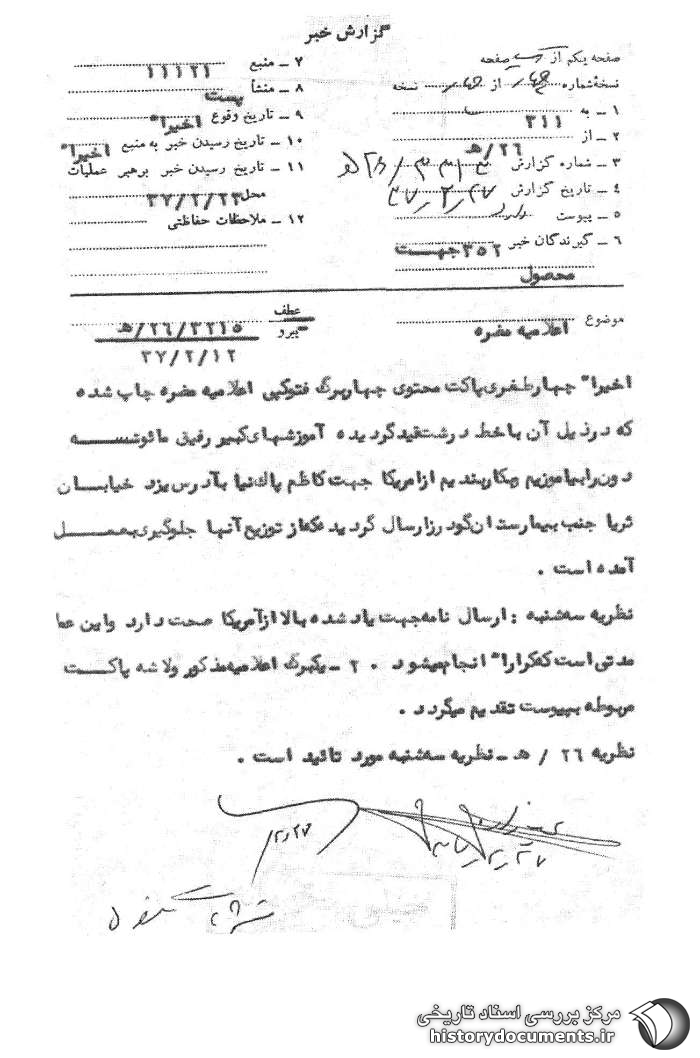 گزارش خبر
صفحه یکم از صفحه
نسخهٔ شماره از نسخه
۱ ــ به ۳۱۱
۲ ــ از ۲۶/هـ
۳ ــ شماره گزارش
۴ ــ تاریخ گزارش ۲۷ر۲ر۳۷
۵ ــ پیوست دارد
۶ ــ گیرندگان خبر ۳۵۲جهت
محصول
۷ ــ منبع ۱۱۱۲۱
۸ ــ منشأ پست
۹ ــ تاریخ وقوع اخیرا"
۱۰ ــ تاریخ رسیدن خبر به منبع اخیرا"
۱۱ ــ تاریخ رسیدن خبر برهبر عملیات
محل ۳۷/۲/۲۳
۱۲ ــ ملاحظات حفاظتی
موضوع اعلامیه مضره
عطف
پیرو ۳۲۱۵/۲۶/هـ
۳۷/۲/۱۲
اخیرا" چهارطغری پاکت محتوی چهاربرگ فتوکپی اعلامیه مضره چاپ شده
که در ذیل آن با خط درشت قید گردیده آموزشهای کبیر رفیق مائوتسه
دون را بیاموزیم و بکاربندیم از امریکا جهت کاظم پاك نیا بآدرس یزد خیابان
ثریا جنب بیمارستان گودرز ارسال گردیده که از توزیع آنها جلوگیری بعمل
آمده است .
نظریه سه شنبه : ارسال نامه جهت یاد شده بالا از آمریکا صحت دارد و این عمل
مدتی است که کرارا" انجام میشود . ۲ ــ یکبرگ اعلامیه مذکور و لاشه پاکت
مربوطه به پیوست تقدیم میگردد .
نظریه ۲۶ / هـ ــ نظریه سه شنبه مورد تائید است .
۲۷ر۲ر۳۷
مرکز بررسی اسناد تاریخی
historydocuments.ir